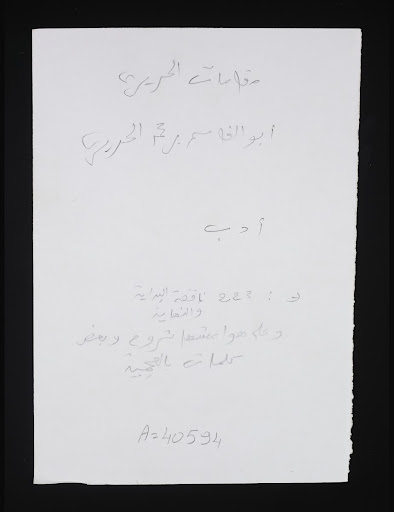 مقامات الحريري
أبو القاسم بن محمد الحريري
أدب
و : 223 ناقصة البداية
والنهاية
وعلى هوامشها شروح وبعض
كلمات بالعجمية
A=40594